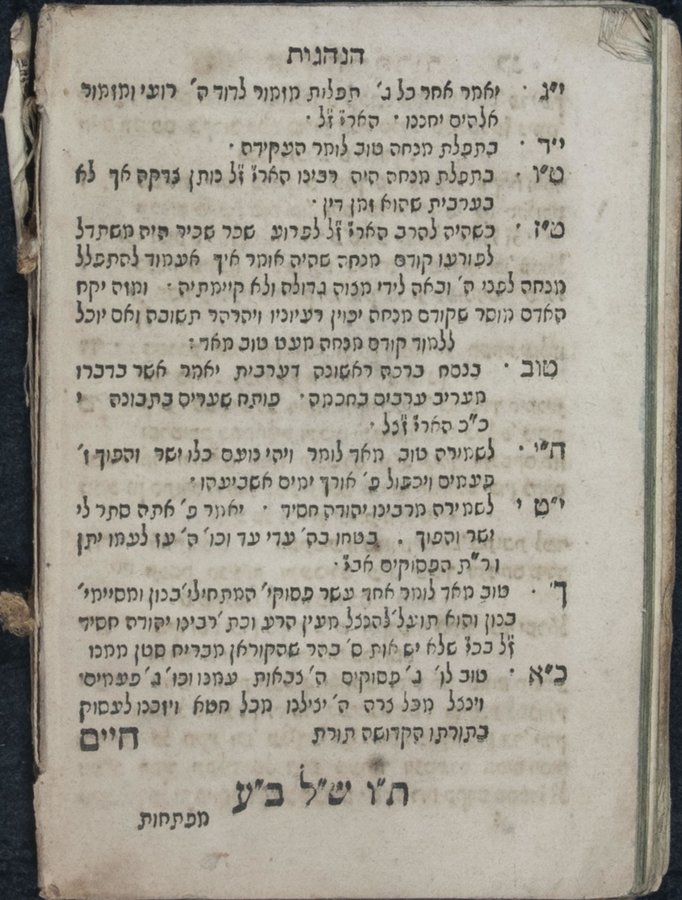 הנהגות
י"ג · יאמר אחר כל ג' תפלות מזמור לדוד ה' רועי ומזמור
אלהים יחננו · האר"י ז"ל ·
י"ד · בתפלת מנחה טוב לומר העקידה ·
ט"ו · בתפלת מנחה היה רבינו האר"י ז"ל נותן צדקה אך לא
בערבית שהוא זמן דין ·
ט"ז · כשהיה להרב האר"י ז"ל לפרוע שכר שכיר היה משתדל
לפורעו קודם מנחה שהיה אומר איך אעמוד להתפלל
מנחה לפני ה' ובאה לידי מצוה גדולה ולא קיימתיה · ומזה יקח
האדם מוסר שקודם מנחה יכוין רעיוניו ויהרהר תשובה ואם יוכל
ללמוד קודם מנחה מעט טוב מאד :
טוב · בנסח ברכה ראשונה דערבית יאמר אשר בדברו
מעריב ערבים בחכמה · פותח שערים בתבונה י
כ"כ האר"י זצ"ל ·
ח"י · לשמירה טוב מאד לומר ויהי נועם כלו ישר והפוך ז'
פעמים ויכפול פ' אורך ימים אשביעהו ·
י"ט י לשמירה מרבינו יהודה חסיד · יאמר פ' אתה סתר לי
ישר והפוך . בטחו בה' עדי עד וכו' ה' עז לעמו יתן
ור"ת הפסוקים
ך' · טוב מאד לומר אחד עשר פסוקי' המתחילי' בנון ומסיימי'
בנון והוא תועל' להנצל מעין הרע וכת' רבינו יהודה חסיד
ז"ל שלא יש אות ס' בהר שהקוראן מבריח סטן ממנו
כ"א · טוב לו' ג' פסוקים ה' צבאות עמנו וכו' ג' פעמים
וינצל מכל צרה ה' יצילנו מכל חטא ויזכנו לעסוק
בתורתו הקדושה תורת חיים
ת"ו ש"ל ב"ע
מפתחות